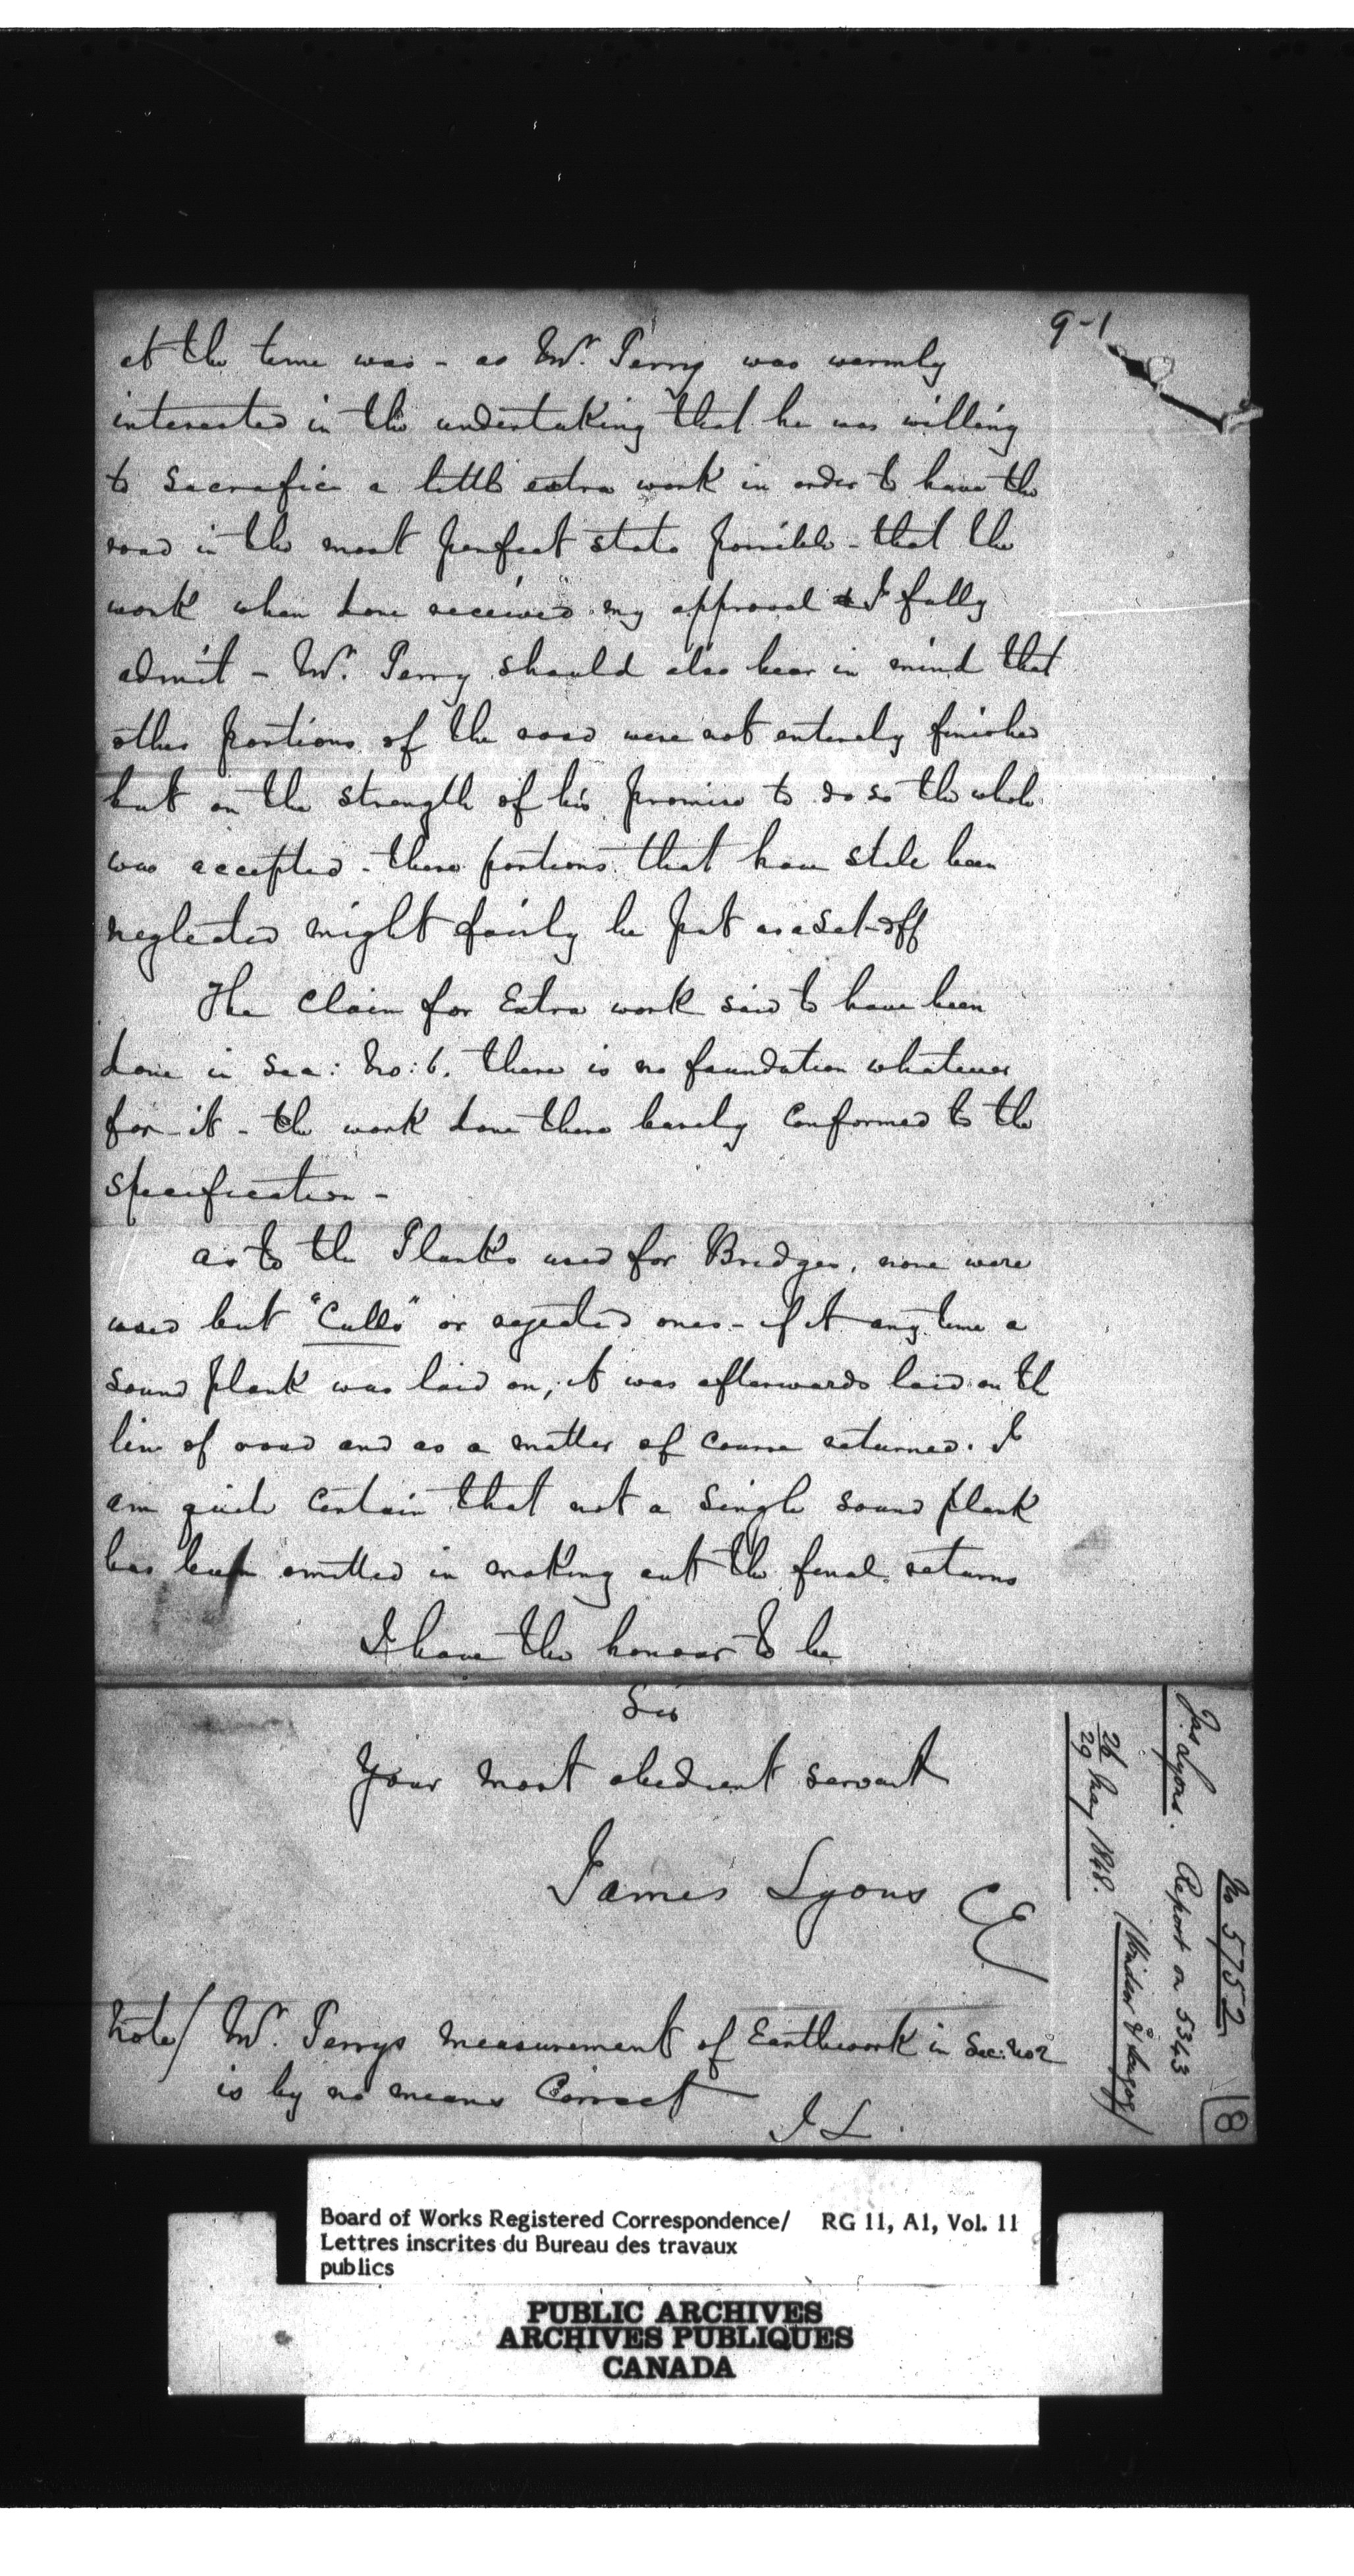 9-1
at the time was - as Mr. Perry was warmly
interested in the undertaking that he was willing
to sacrafice a little extra work in order to have the
road in the most perfect state possible - that the
work when done received my approval I fully
admit - Mr. Perry should also bear in mind that
other portions of the road were not entirely finished
but on the strength of his promise to do so the whole
was accepted - these portions that have still been
neglected might fairly be put as a set-off
The Claim for Extra work said to have been
done in Sec: No: 6. there is no foundation whatever
for it - the work done there barely Conformed to the
specification -
as to the Planks used for Bridges, none were
used but "Culls" or rejected ones - if at any time a
sound plank was laid on, it was afterwards laid on the
line of road and as a matter of course returned. I
am quite certain that not a single sound plank
has been omitted in making out the final returns
I have the honour to be
Sir
Your most obedient servant
James Lyons CE
Note/ Mr. Perrys measurement of Earthwork in Sec: No 2
is by no means Correct
J L.
No 5752
Jas Lyons. Report on 5343
26 May 1848.
29
(Windsor & Scugog)
8
Board of Works Registered Correspondence/ RG 11, A1, Vol. 11
Lettres inscrites du Bureau des travaux
publics
PUBLIC ARCHIVES
ARCHIVES PUBLIQUES
CANADA